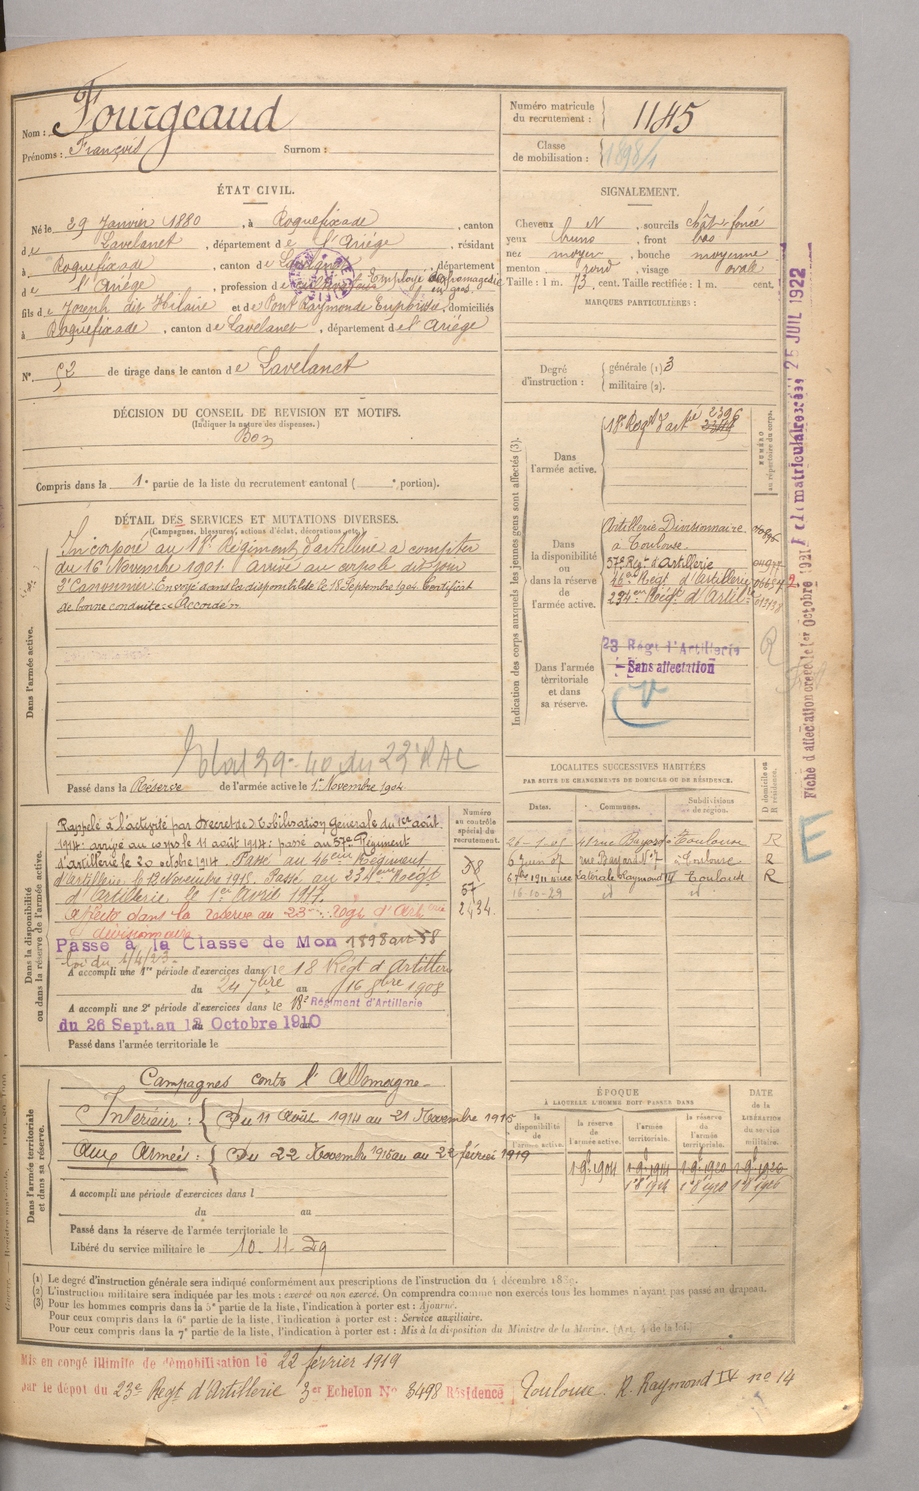 Nom : Fourgeaud
Prénoms : François Surnom :
ÉTAT CIVIL.
Né le 29 Janvier 1880, à Roquefixade, canton
de Lavelanet, département de l'Ariége, résidant
à Roquefixade, canton de Lavelanet, département
de l'Ariége, profession de Employé de fromagerie
en gros.
fils de Joseph dit Hilaire et de Pont Raymonde Euphrosine, domiciliés
à Roquefixade, canton de Lavelanet, département de l'Ariége
N° 52 de tirage dans le canton de Lavelanet
DÉCISION DU CONSEIL DE REVISION ET MOTIFS.
(Indiquer la nature des dispenses.)
Bon
Compris dans la 1e partie de la liste du recrutement cantonal ( e portion).
DÉTAIL DES SERVICES ET MUTATIONS DIVERSES.
(Campagnes, blessures, actions d'éclat, décorations, etc.)
Dans l'armée active.
Incorporé au 18e Régiment d'artillerie à compter
du 16 Novembre 1901. Arrivé au corps le dit jour
2e Canonnier. Envoyé dans la disponibilité le 18 Septembre 1904. Certificat
de bonne conduite : "Accordé".
29-40 du 22e RAC
Passé dans la Réserve de l'armée active le 1er Novembre 1904
Dans la disponibilité
ou dans la réserve de l'armée active.
Numéro
au contrôle
spécial du
recrutement.
Rappelé à l'activité par Décret de Mobilisation Générale du 1er août
1914 : arrivé au corps le 11 août 1914 : passé au 57e Régiment
d'artillerie le 20 octobre 1914. Passé au 46eme Régiment
d'Artillerie le 13 Novembre 1915. Passé au 234eme Régt
d'Artillerie le 1er Avril 1917.
Affecté dans la réserve au 23e Régt d'Artillerie
divisionnaire
57
234
Passé à la Classe de Mon 1898 art 58
loi du 1/4/23-
A accompli une 1re période d'exercices dans le 18 Régt d'Artillerie
du 24 7bre au 16 8bre 1908
A accompli une 2e période d'exercices dans le 18e Régiment d'Artillerie
du 26 Sept. au 12 Octobre 1910
Passé dans l'armée territoriale le
Dans l'armée territoriale
et dans sa réserve.
Campagnes contre l'Allemagne-
Intérieur : { Du 11 Août 1914 au 21 Novembre 1915
Aux Armées : { Du 22 Novembre 1915 au 22 février 1919
A accompli une période d'exercices dans l
du au
Passé dans la réserve de l'armée territoriale le
Libéré du service militaire le 10-11-29
Numéro matricule
du recrutement : 1145
Classe
de mobilisation : 1898/1
SIGNALEMENT.
Cheveux N, sourcils chât foncé
yeux bruns, front bas
nez moyen, bouche moyenne
menton rond, visage ovale
Taille : 1 m. 73 cent. Taille rectifiée : 1 m. cent.
MARQUES PARTICULIÈRES :
Degré
d'instruction :
générale (1) 3
militaire (2).
Indication des corps auxquels les jeunes gens sont affectés (3).
Dans
l'armée active.
18e Regt d'artie 2396
NUMÉRO
au répertoire du corps.
Dans
la disponibilité
ou dans la réserve
de l'armée active.
Artillerie Divisionnaire
à Toulouse
57e Régt d'Artillerie
46eme Régt d'Artillerie
234eme Régt d'Artillerie
Dans l'armée
territoriale
et dans
sa réserve.
23 Régt d'Artillerie
Sans affectation
R
LOCALITES SUCCESSIVES HABITÉES
PAR SUITE DE CHANGEMENTS DE DOMICILE OU DE RÉSIDENCE.
Dates. Communes. Subdivisions de région. D domicile ou R résidence.
41 rue Bayard à Toulouse R
6 Juin 07 rue Bayard N° 7 à Toulouse R
6 7bre 1911 rue Latérale Raymond IV Toulouse R
16-10-29 id id
ÉPOQUE
À LAQUELLE L'HOMME DOIT PASSER DANS
la disponibilité de l'armée active. la réserve de l'armée active. l'armée territoriale. la réserve de l'armée territoriale.
DATE de la LIBÉRATION du service militaire.
1 9e 1904 1 9e 1914 1 9e 1920 1 9e 1926
1 8e 1914 1 8e 1920 1 8e 1926
Fiche d'affectation creée le 1er Octobre 1921
25 JUIL 1922
E
(1) Le degré d'instruction générale sera indiqué conformément aux prescriptions de l'instruction du 4 décembre
(2) L'instruction militaire sera indiquée par les mots : exercé ou non exercé. On comprendra comme non exercés tous les hommes n'ayant pas passé au drapeau.
(3) Pour les hommes compris dans la 5e partie de la liste, l'indication à porter est : Ajourné.
Pour ceux compris dans la 6e partie de la liste, l'indication à porter est : Service auxiliaire.
Pour ceux compris dans la 7e partie de la liste, l'indication à porter est : Mis à la disposition du Ministre de la Marine. (Art. 4 de la loi.)
Mis en congé illimité de démobilisation le 22 février 1919
par le dépot du 23e Regt d'Artillerie 3er Echelon N° 3498 Résidence Toulouse. R. Raymond IV n° 14